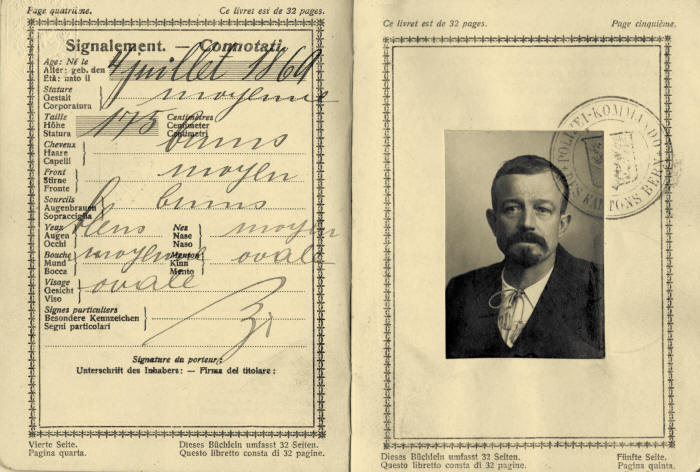 Page quatrième. Ce livret est de 32 pages.
Signalement. — Connotati.
Age: Né le
Alter: geb. den
Età: nato il
4 juillet 1869
Stature
Gestalt
Corporatura
moyenne
Taille Centimètres
Höhe 175 Centimeter
Statura Centimetri
Cheveux
Haare
Capelli
bruns
Front
Stirne
Fronte
moyen
Sourcils
Augenbrauen
Sopracciglia
bruns
Yeux
Augen
Occhi
bleus
Nez
Nase
Naso
moyen
Bouche
Mund
Bocca
moyenne
Menton
Kinn
Mento
ovale
Visage
Gesicht
Viso
ovale
Signes particuliers
Besondere Kennzeichen
Segni particolari
Signature du porteur:
Unterschrift des Inhabers: — Firma del titolare:
Vierte Seite. Dieses Büchlein umfasst 32 Seiten.
Pagina quarta. Questo libretto consta di 32 pagine.
Ce livret est de 32 pages. Page cinquième.
POLIZEI-KOMMANDO
DES KANTONS BERN
Dieses Büchlein umfasst 32 Seiten. Fünfte Seite.
Questo libretto consta di 32 pagine. Pagina quinta.